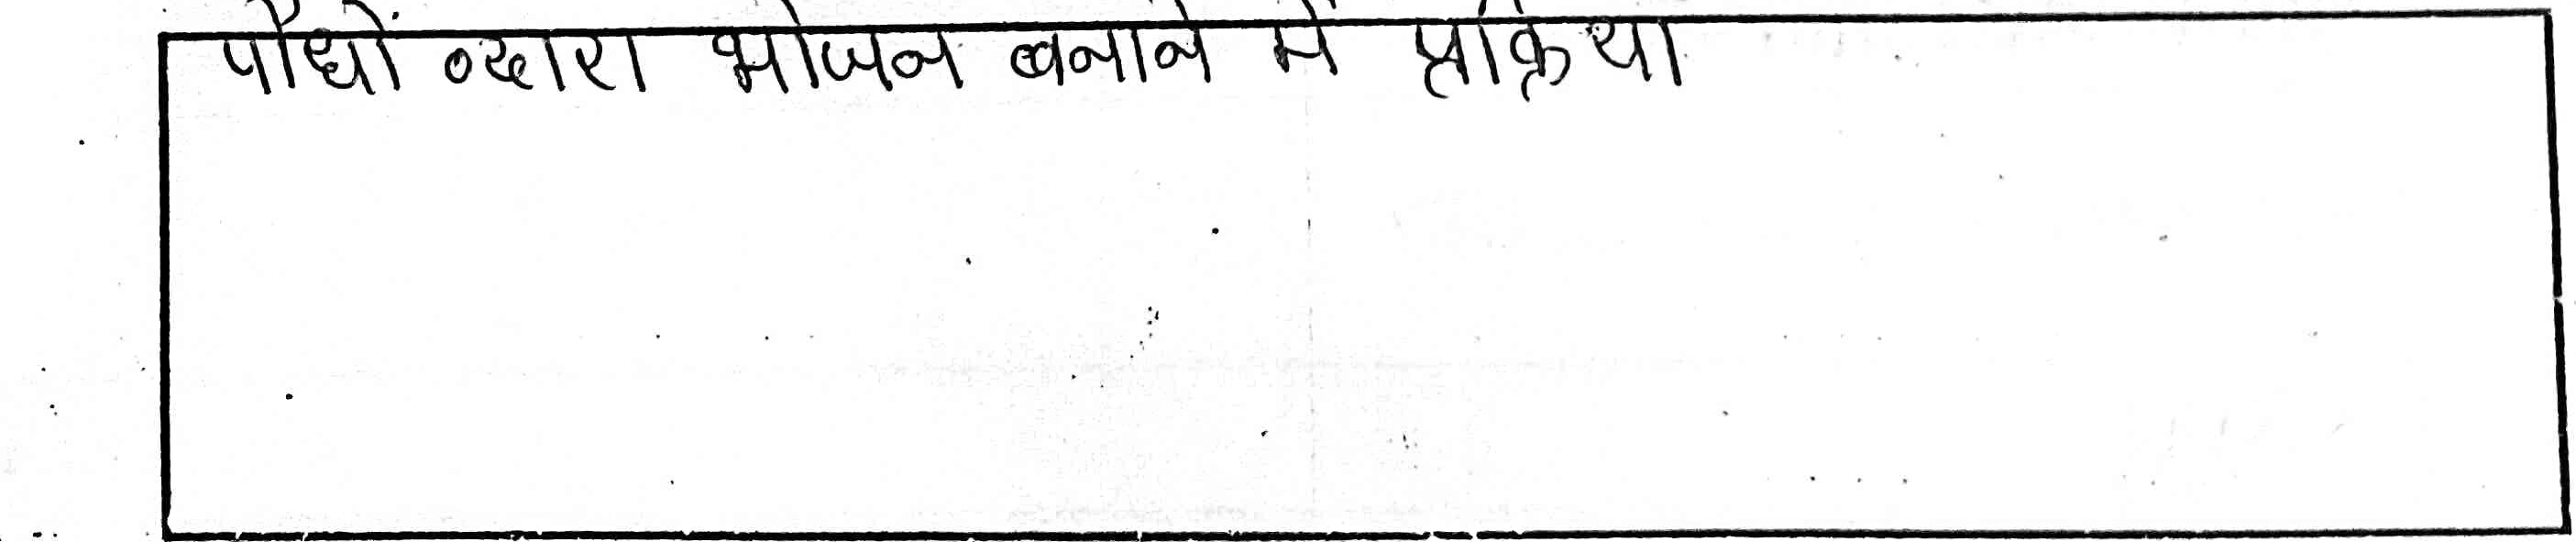 पौधों व्दारा भोजन बनाने में प्रक्रिया